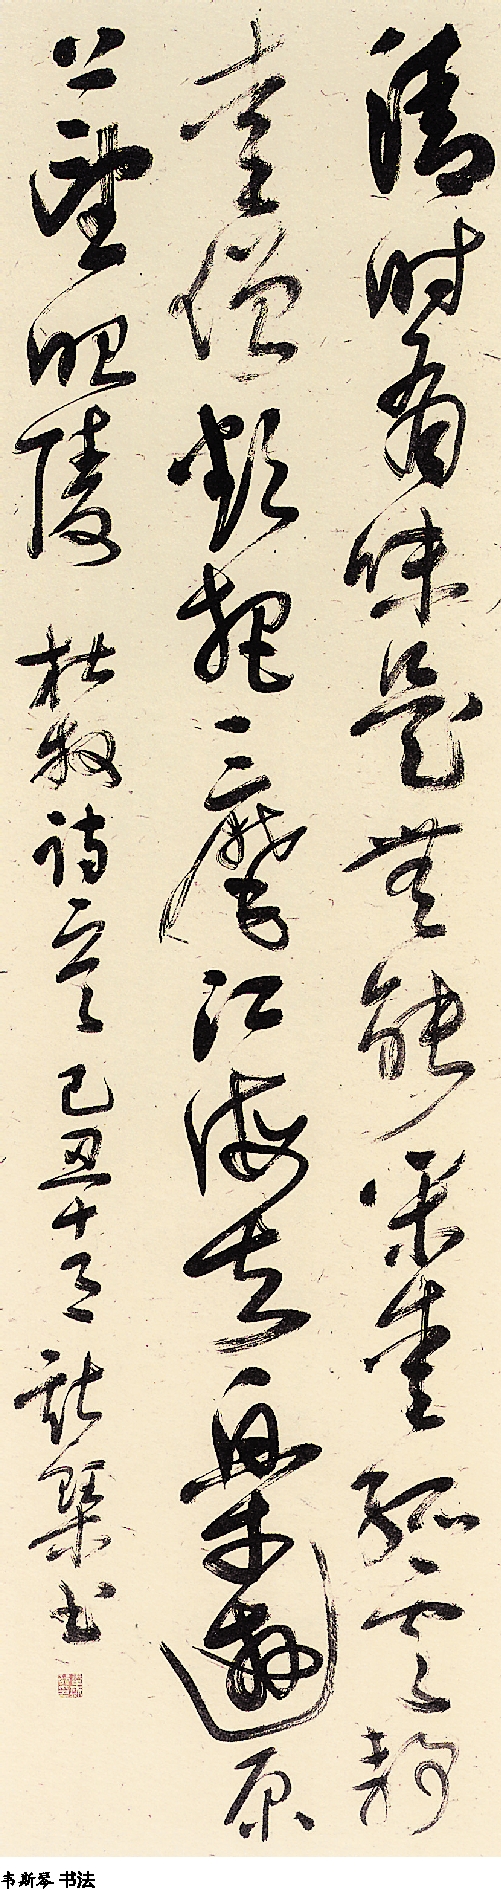 清时有味是無能闲爱孤云静
爱僧欲把一麾江海去樂遊原
上望昭陵 杜牧诗 己丑十月 斯琴书
韦斯琴 书法